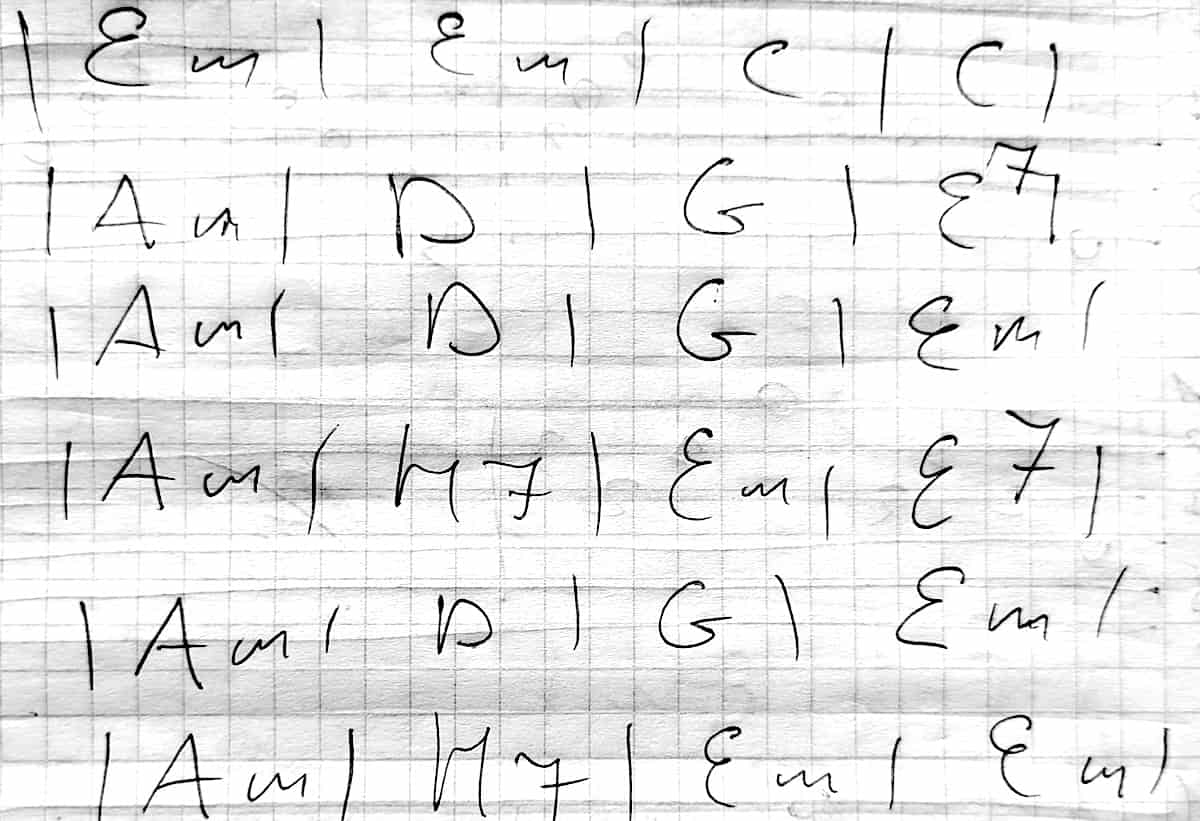 | Em | Em | C | C |
| Am | D | G | E7 |
| Am | D | G | Em |
| Am | H7 | Em | E7 |
| Am | D | G | Em |
| Am | H7 | Em | Em |